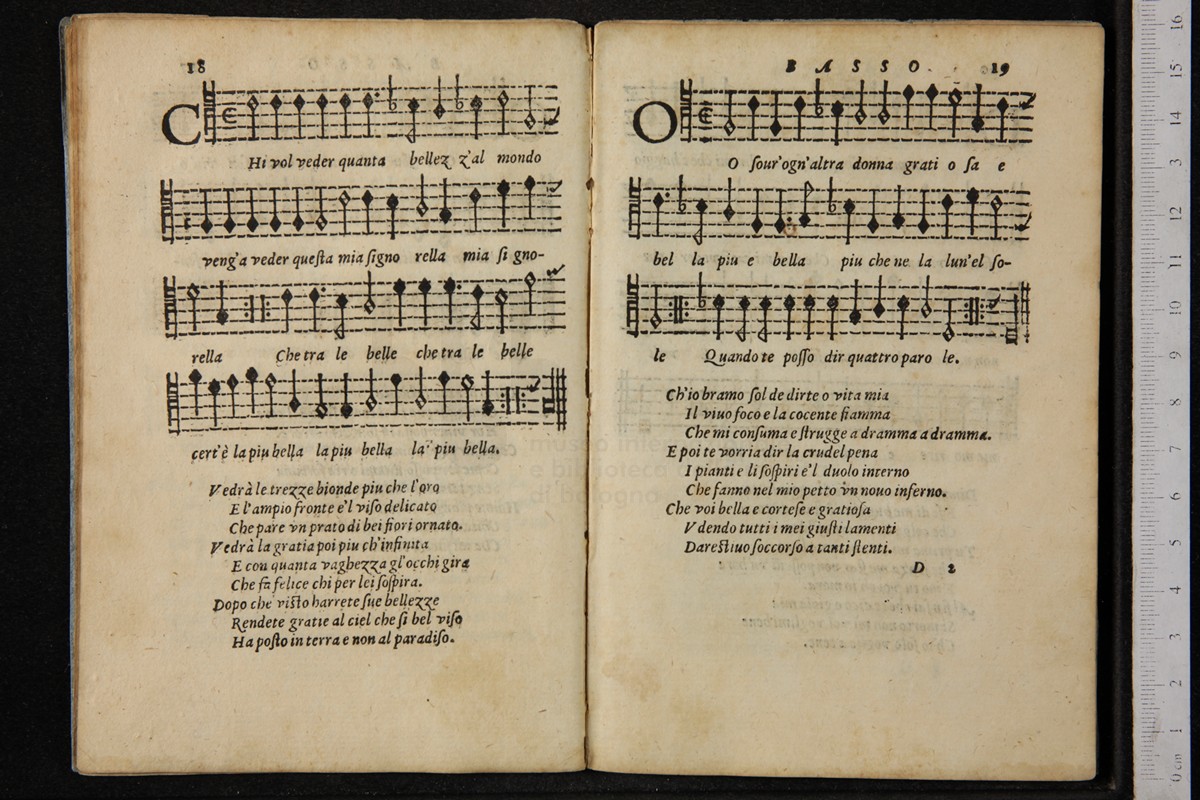 18
C
Hi vol veder quanta bellez z'al mondo
veng'a veder queſta mia ſigno rella mia ſi gno-
rella Che tra le belle che tra le belle
cert'è la piu bella la piu bella la piu bella.
Vedrà le trezze bionde piu che l'oro
E l'ampio fronte e'l viſo delicato
Che pare vn prato di bei fiori ornato.
Vedrà la gratia poi piu ch'infinita
E con quanta vaghezza gl'occhi gira
Che fa felice chi per lei ſoſpira.
Dopo che viſto harrete ſue bellezze
Rendete gratie al ciel che ſi bel viſo
Ha poſto in terra e non al paradiſo.
BASSO. 19
O
O ſour'ogn'altra donna grati o ſa e
bel la piu e bella piu che ne la lun'el ſo-
le Quando te poſſo dir quattro paro le.
Ch'io bramo ſol de dirte o vita mia
Il viuo foco e la cocente fiamma
Che mi conſuma e ſtrugge a dramma a dramma.
E poi te vorria dir la crudel pena
I pianti e li ſoſpiri e'l duolo interno
Che fanno nel mio petto vn nouo inferno.
Che voi bella e corteſe e gratioſa
Vdendo tutti i mei giuſti lamenti
Dareſtiuo ſoccorſo a tanti ſtenti.
D 2
museo inte
e biblioteca
di bologna
0 cm 1 2 3 4 5 6 7 8 9 10 11 12 13 14 15 16